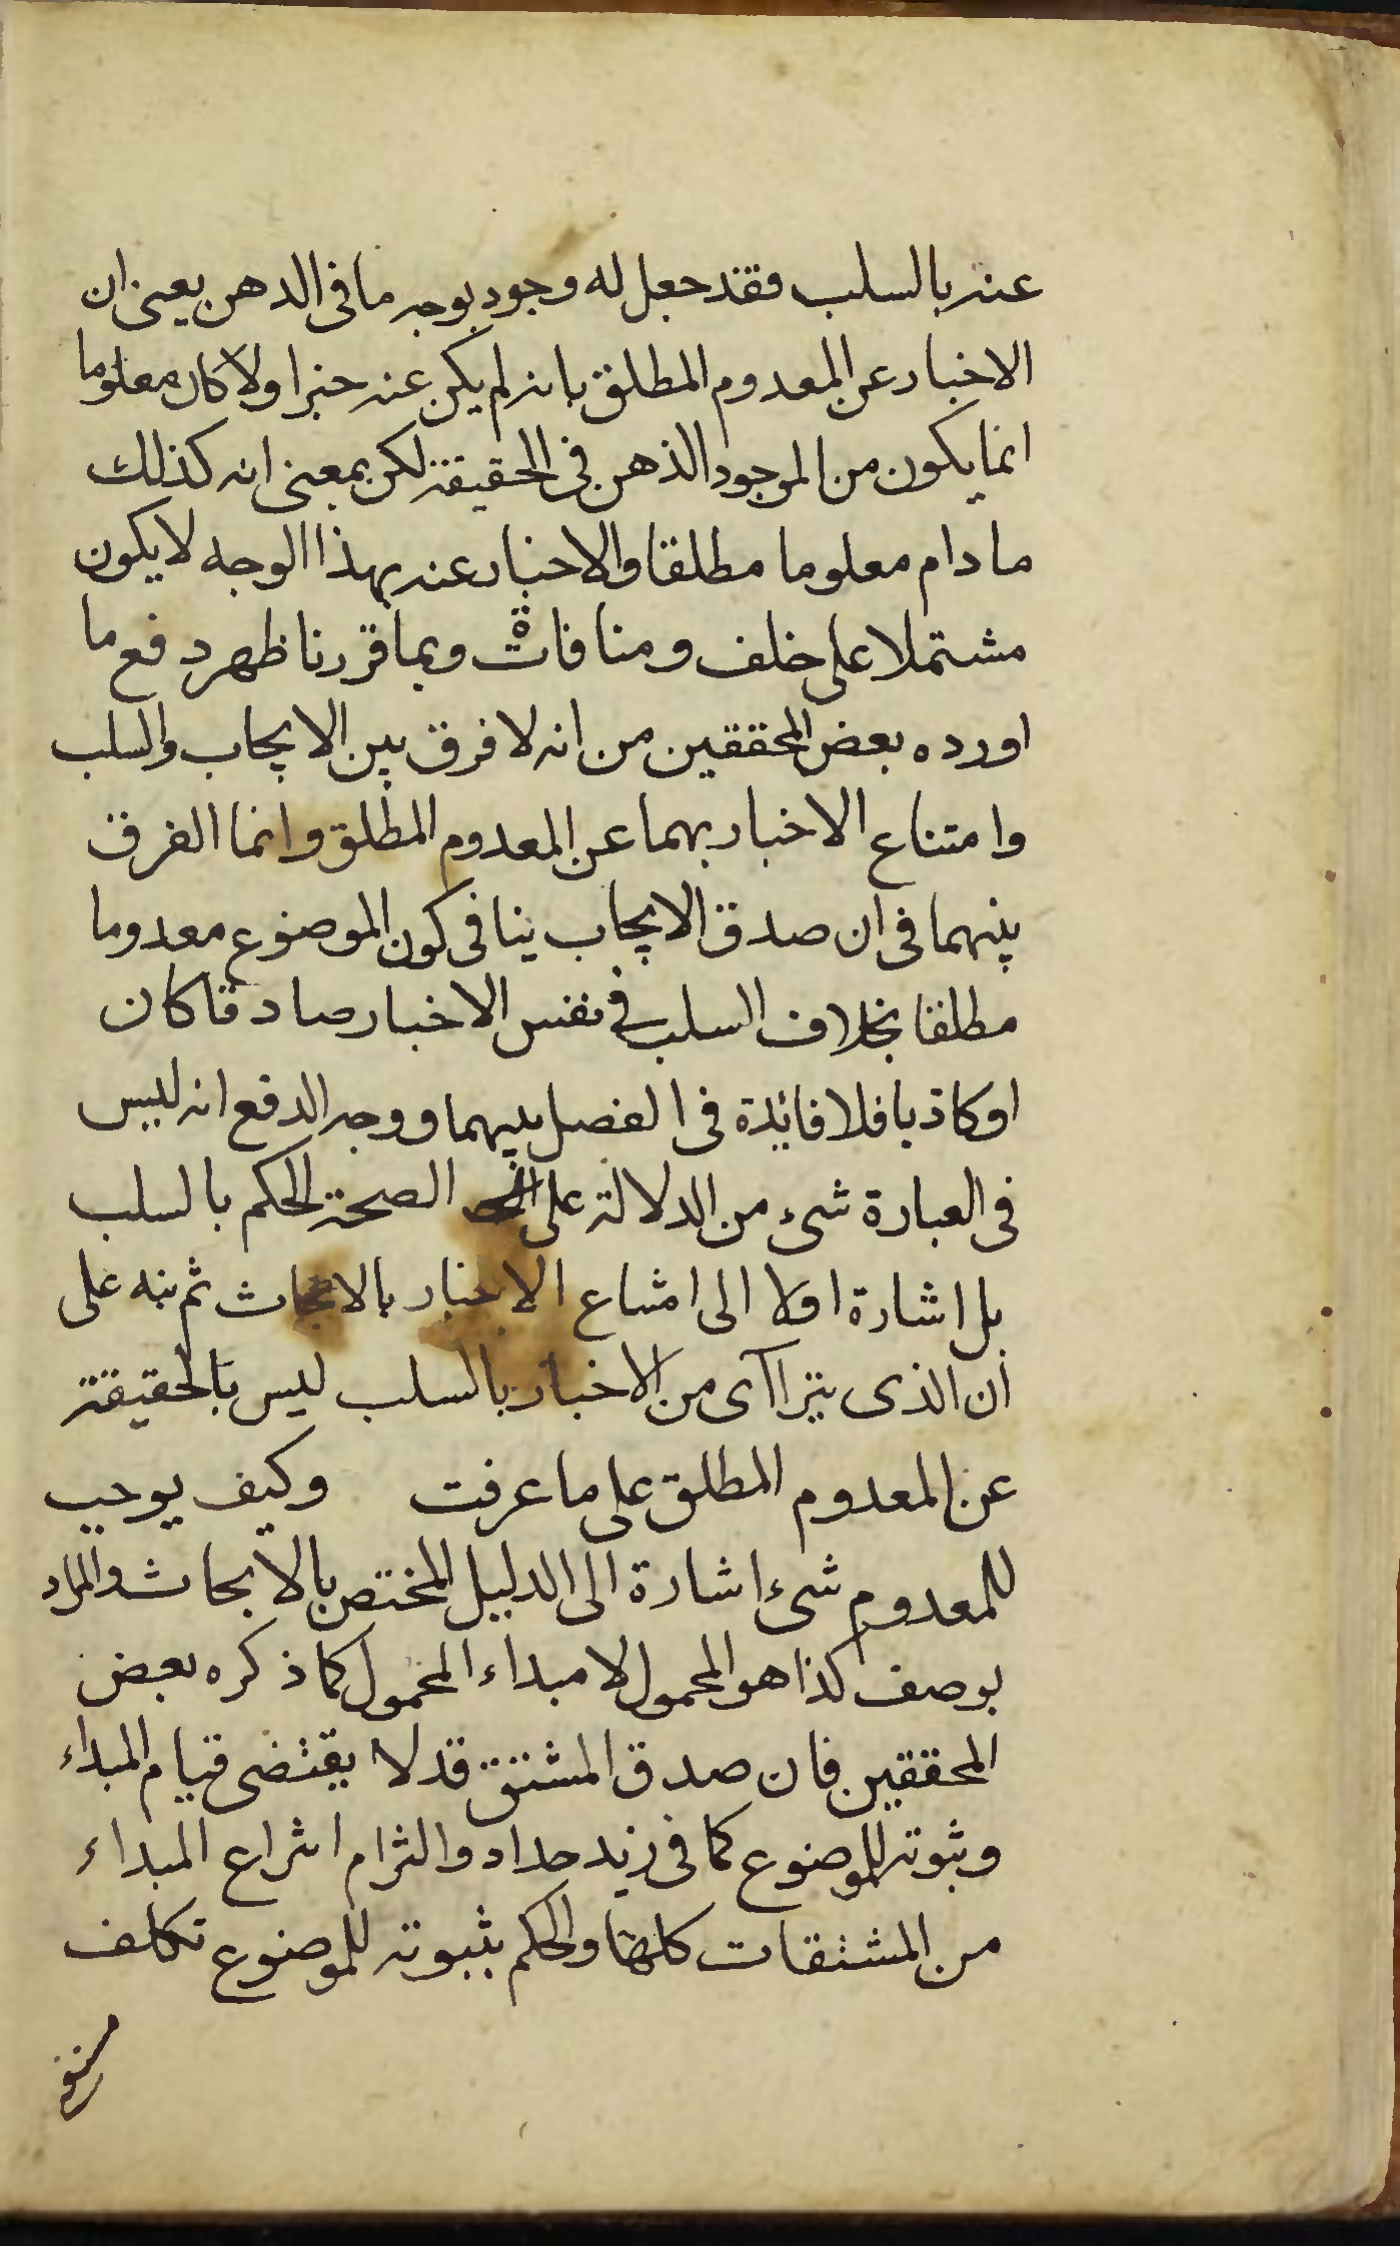 عنه بالسلب فقد جعل له وجود بوجه ما فى الدهن يعنى ان
الاخبار عن المعدوم المطلق بانه لم يكن عنه خبرا ولا كان معلوما
انما يكون من الموجود الذهن فى الحقيقة لكن بمعنى انه كذلك
ما دام معلوما مطلقا والاخبار عنه بهذا الوجه لا يكون
مشتملا على خلف ومنافاة وبما قررنا ظهر دفع ما
اورده بعض المحققين من انه لا فرق بين الايجاب والسلب
وامتناع الاخبار بهما عن المعدوم المطلق وانما الفرق
بينهما فى ان صدق الايجاب ينافى كون الموضوع معدوما
مطلقا بخلاف السلب فى نفس الاخبار صادقا كان
او كاذبا فلا فائدة فى الفصل بينهما ووجه الدفع انه ليس
فى العبارة شىء من الدلالة على الصحة الحكم بالسلب
بل اشارة اولا الى امتناع الاخبار بالايجاب ثم نبه على
ان الذى يتراآى من الاخبار بالسلب ليس بالحقيقة
عن المعدوم المطلق على ما عرفت وكيف يوجب
للمعدوم شىء اشارة الى الدليل المختص بالايجاب والمراد
بوصف كذا هو المحمول لا مبداء المحمول كما ذكره بعض
المحققين فان صدق المشتق قد لا يقتضى قيام المبداء
وثبوته للموضوع كما فى زيد حداد والتزام انتزاع المبداء
من المشتقات كلها والحكم بثبوته للموضوع تكلف